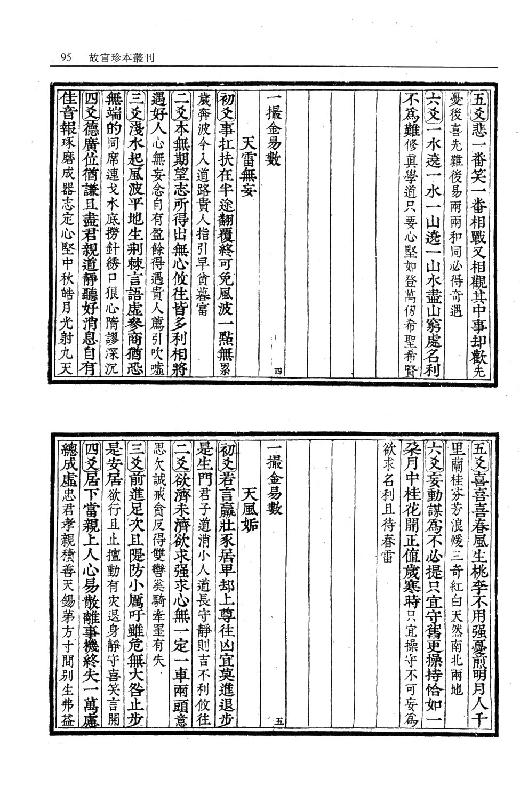 95 故宮珍本叢刊
五爻悲一番笑一番相戰又相觀其中事却歡先
憂後喜先難後易兩兩和同必得奇遇
六爻一水遶一水一山遶一山水盡山窮處名利
不爲難修真學道只要心堅如登萬仞希聖希賢
一撮金易數
四
天雷無妄
初爻事扛扶在半途翻覆終可免風波一點無累
歲奔波今入道路貴人指引早貧暮富
二爻本無期望志所得出無心攸往皆多利相將
遇好人心無妄念自有盈餘得遇貴人薦引吹噓
三爻淺水起風波平地生荆棘言語虛參商猶恐
無端的同席連戈水底撈針綉口狠心隋謬深沉
四爻德廣位猶謙且盡君親道靜聽好消息自有
佳音報琢磨成器志定心堅中秋皓月光射九天
五爻喜喜喜春風生桃李不用强憂煎明月人千
里蘭桂芬芳浪煖三奇紅白天然南北兩地
六爻妄動謀爲不必提只宜守舊更操持恰如一
朶月中桂花開正值歲寒時只宜操守不可妄爲
欲求名利且待春雷
一撮金易數
五
天風姤
初爻若言羸壯豕居卑却上尊往凶宜莫進退步
是生門君子道消小人道長守靜則吉不利攸往
二爻欲濟未濟欲求强求心無一定一車兩頭意
思欠誠戒貪反得雙嚳奚騎牽罣有失
三爻前進足次且隄防小厲吁雖危無大咎止步
是安居欲行且止擅動有灾退身靜守喜笑言開
四爻居下當親上人心易散離事機終失一萬慮
總成虛忠君孝親積善天錫第方寸間别生弗益